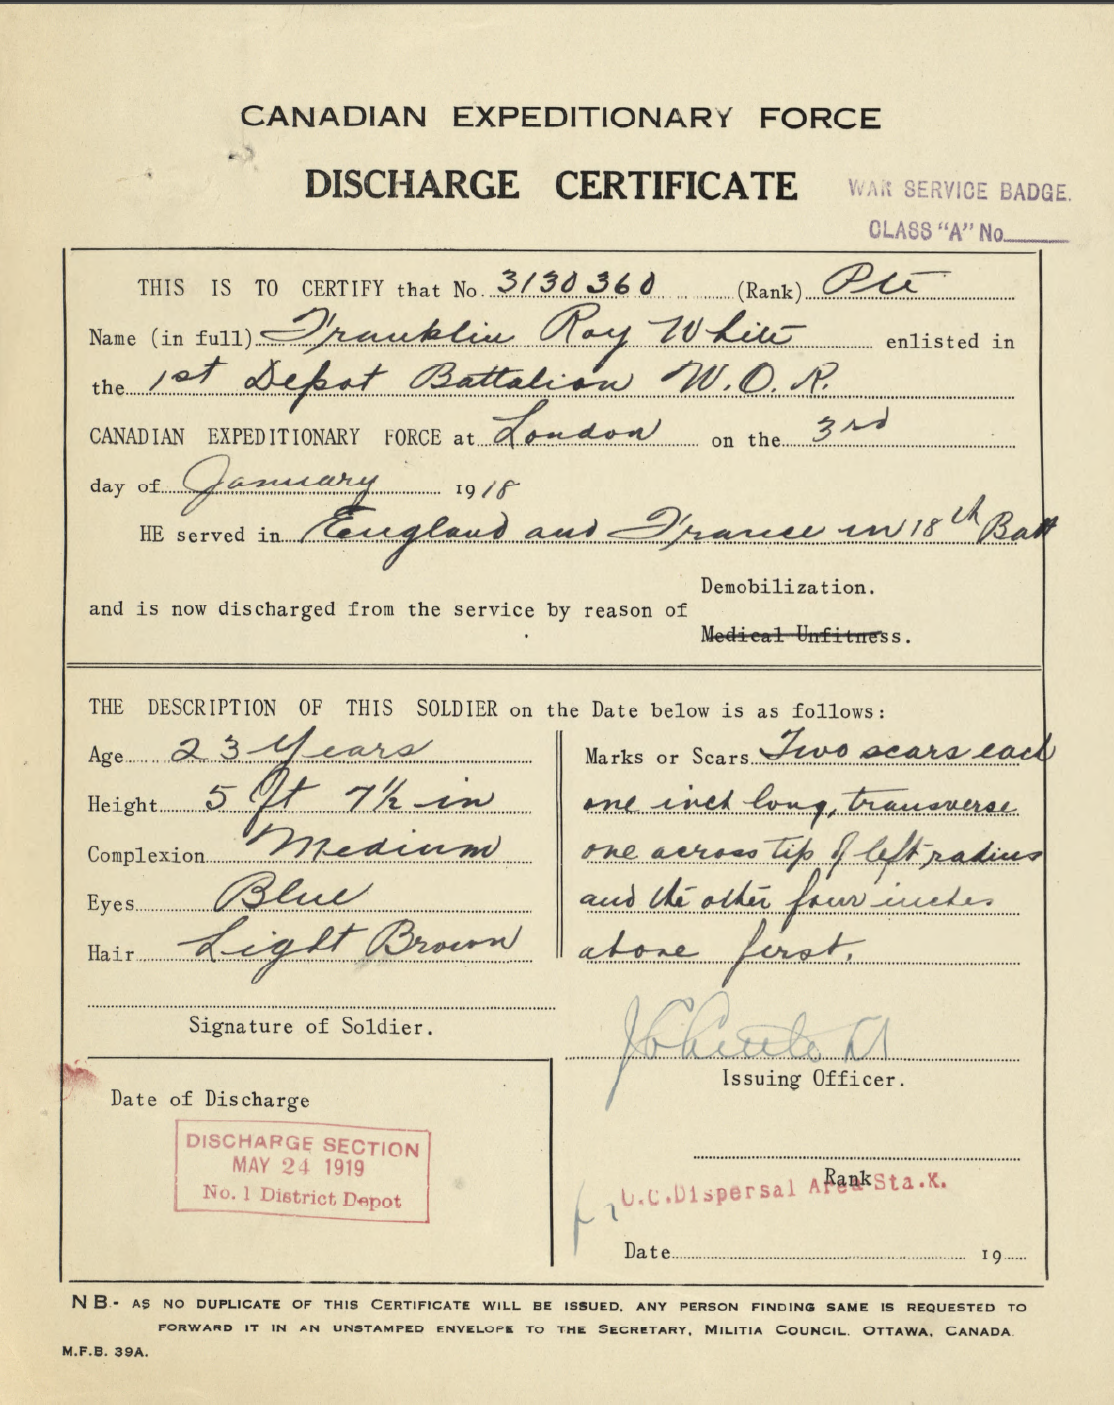 CANADIAN EXPEDITIONARY FORCE
DISCHARGE CERTIFICATE
WAR SERVICE BADGE.
CLASS "A" No.
THIS IS TO CERTIFY that No. 3130360 (Rank) Pte
Name (in full) Franklin Roy White enlisted in
the 1st Depot Battalion W.O.R.
CANADIAN EXPEDITIONARY FORCE at London on the 3rd
day of January 1918
HE served in England and France in 18th Batt
Demobilization.
and is now discharged from the service by reason of
Medical Unfitness.
THE DESCRIPTION OF THIS SOLDIER on the Date below is as follows:
Age 23 Years
Height 5 ft 7½ in
Complexion Medium
Eyes Blue
Hair Light Brown
Marks or Scars Two scars each
one inch long, transverse
one across tip of left radius
and the other four inches
above first.
Signature of Soldier.
Issuing Officer.
Date of Discharge
DISCHARGE SECTION
MAY 24 1919
No. 1 District Depot
Rank
O.C. Dispersal Area Sta. K.
Date 19
NB.- AS NO DUPLICATE OF THIS CERTIFICATE WILL BE ISSUED, ANY PERSON FINDING SAME IS REQUESTED TO
FORWARD IT IN AN UNSTAMPED ENVELOPE TO THE SECRETARY, MILITIA COUNCIL, OTTAWA, CANADA.
M.F.B. 39A.